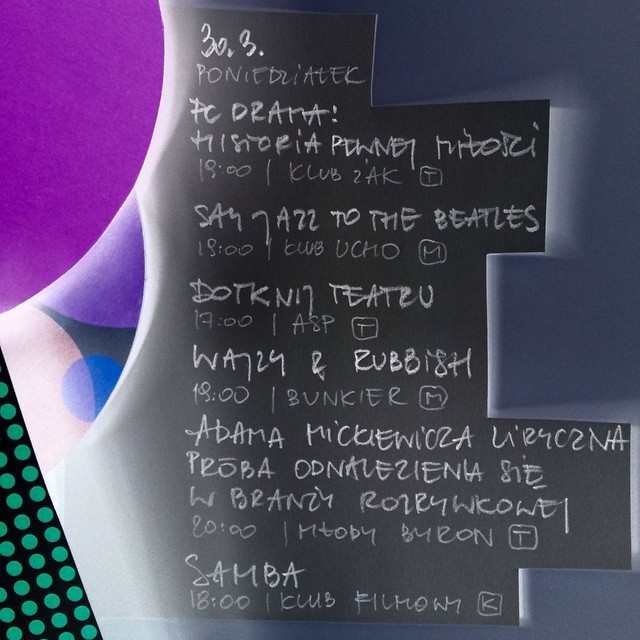 30.3.
PONIEDZIAŁEK
PC DRAMA!
HISTORIA PEWNEJ MIŁOŚCI
19:00 | KLUB ŻAK T
SAY JAZZ TO THE BEATLES
19:00 | KLUB UCHO M
DOTKNIJ TEATRU
17:00 | ASP T
WAJZY & RUBBISH
19:00 | BUNKIER M
ADAMA MICKIEWICZA LIRYCZNA
PRÓBA ODNALEZIENIA SIĘ
W BRANŻY ROZRYWKOWEJ
20:00 | MŁODY BYRON T
SAMBA
18:00 | KLUB FILMOWY K